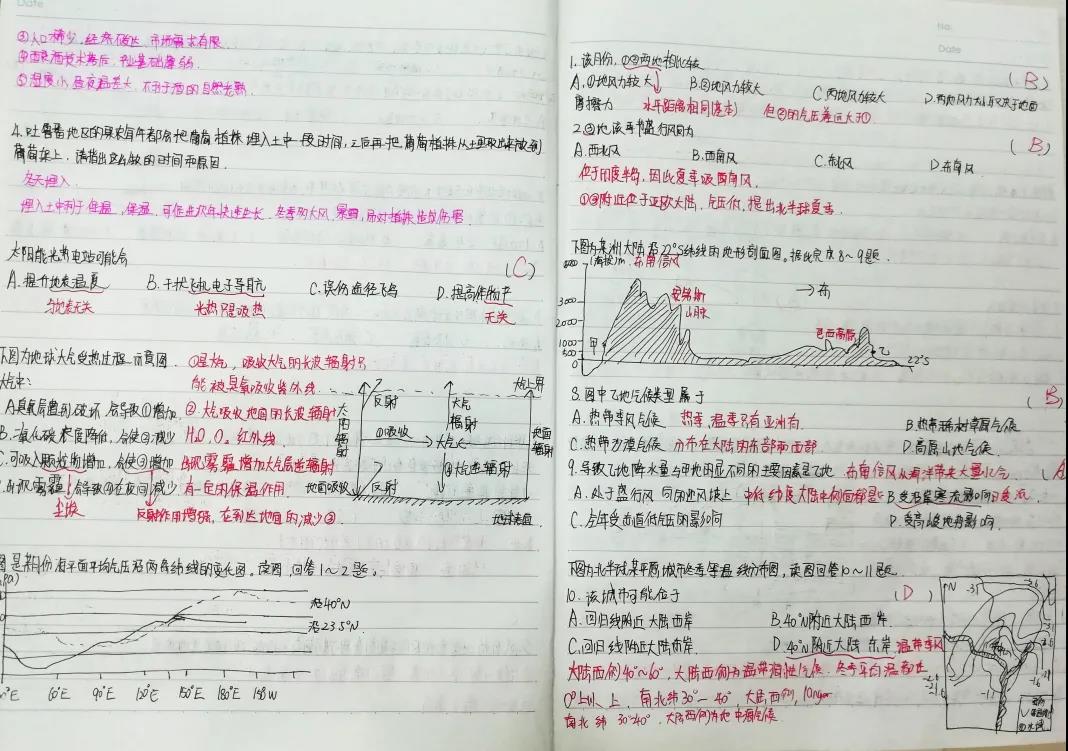 ③人口稀少,经济不发达,市场需求有限
⑤湿度小,昼夜温差大,不利于酒的自然发酵.
4.吐鲁番地区的果农每年都会把葡萄植株埋入土中一段时间,之后再把葡萄植株从土里取出来放到
葡萄架上,请指出这么做的时间和原因.
冬天埋入.
太阳能光热电站可能会
(C)
A.提升地表温度
B.干扰飞机电子导航
C.误伤途径飞鸟
D.提高作物产
与地表无关
光热只吸热
无关
下图为地球大气受热过程示意图.
①是大气,吸收太阳的长波辐射只
大气中:
能被臭氧吸收紫外线.
A.臭氧层遭到破坏,会导致①增加
②大气吸收地面的长波辐射
B.二氧化碳浓度降低,会使②减少
红外线.
C.可吸入颗粒物增加,会使③增加
出现雾霾增加大气层逆辐射
出现雾霾,会导致④在夜间减少
有一定的保温作用.
反射作用增强,在到达地面的减少③.
太阳辐射
反射
①吸收
反射
地面吸收
大气辐射
大气
④大气逆辐射
大气上界
地面辐射
地球表面
图是某月份海平面平均气压沿两条纬线的变化图。读图,回答1~2题。
沿40°N
沿23.5°N
60°E
90°E
120°E
150°E
180°E
150°W
1.该月份,①②两地相比较
(B)
A.①地风力较大
B.②地风力较大
C.两地风力较大
D.两地风力大小取决于地面
摩擦力
水平距离相同(基本)
但②的气压差远大于①.
2.③地该季节盛行风向为
(B)
A.西北风
B.西南风
C.东北风
D.东南风
位于印度半岛,因此夏季吹西南风.
①③附近位于亚欧大陆,气压低,提出北半球夏季.
下图为某洲大陆沿22°S纬线的地形剖面图。据此完成8~9题.
(海拔)m
东南信风
3000
2000
1000
500
0
甲
安第斯
山脉
→东
巴西高原
乙
22°S
8.图中乙地气候类型属于
(B)
A.热带季风气候
热季,温季只有亚洲有.
B.热带稀树草原气候
C.热带沙漠气候
分布在大陆的东部和西部.
D.高原山地气候.
9.导致乙地降水量与甲地明显不同的主要因素是乙地
东南信风从海洋带来大量水气
(A
A.处于盛行风向的迎风坡上
B.受沿岸寒流影响
C.全年受赤道低气压的影响
D.受高峻地形影响.
下图为北半球某平原城市冬季等温线分布图,读图回答10~11题.
10.该城市可能位于
(D)
A.回归线附近大陆西岸
B.40°N附近大陆西岸.
C.回归线附近大陆东岸
D.40°N附近大陆东岸.
温带季风
大陆西侧40°~60°,大陆西侧为温带海洋性气候,冬季平均温都在
0°以上,南北纬30°—40°大陆西侧,
南北纬30°~40°,大陆西侧为地中海气候
N